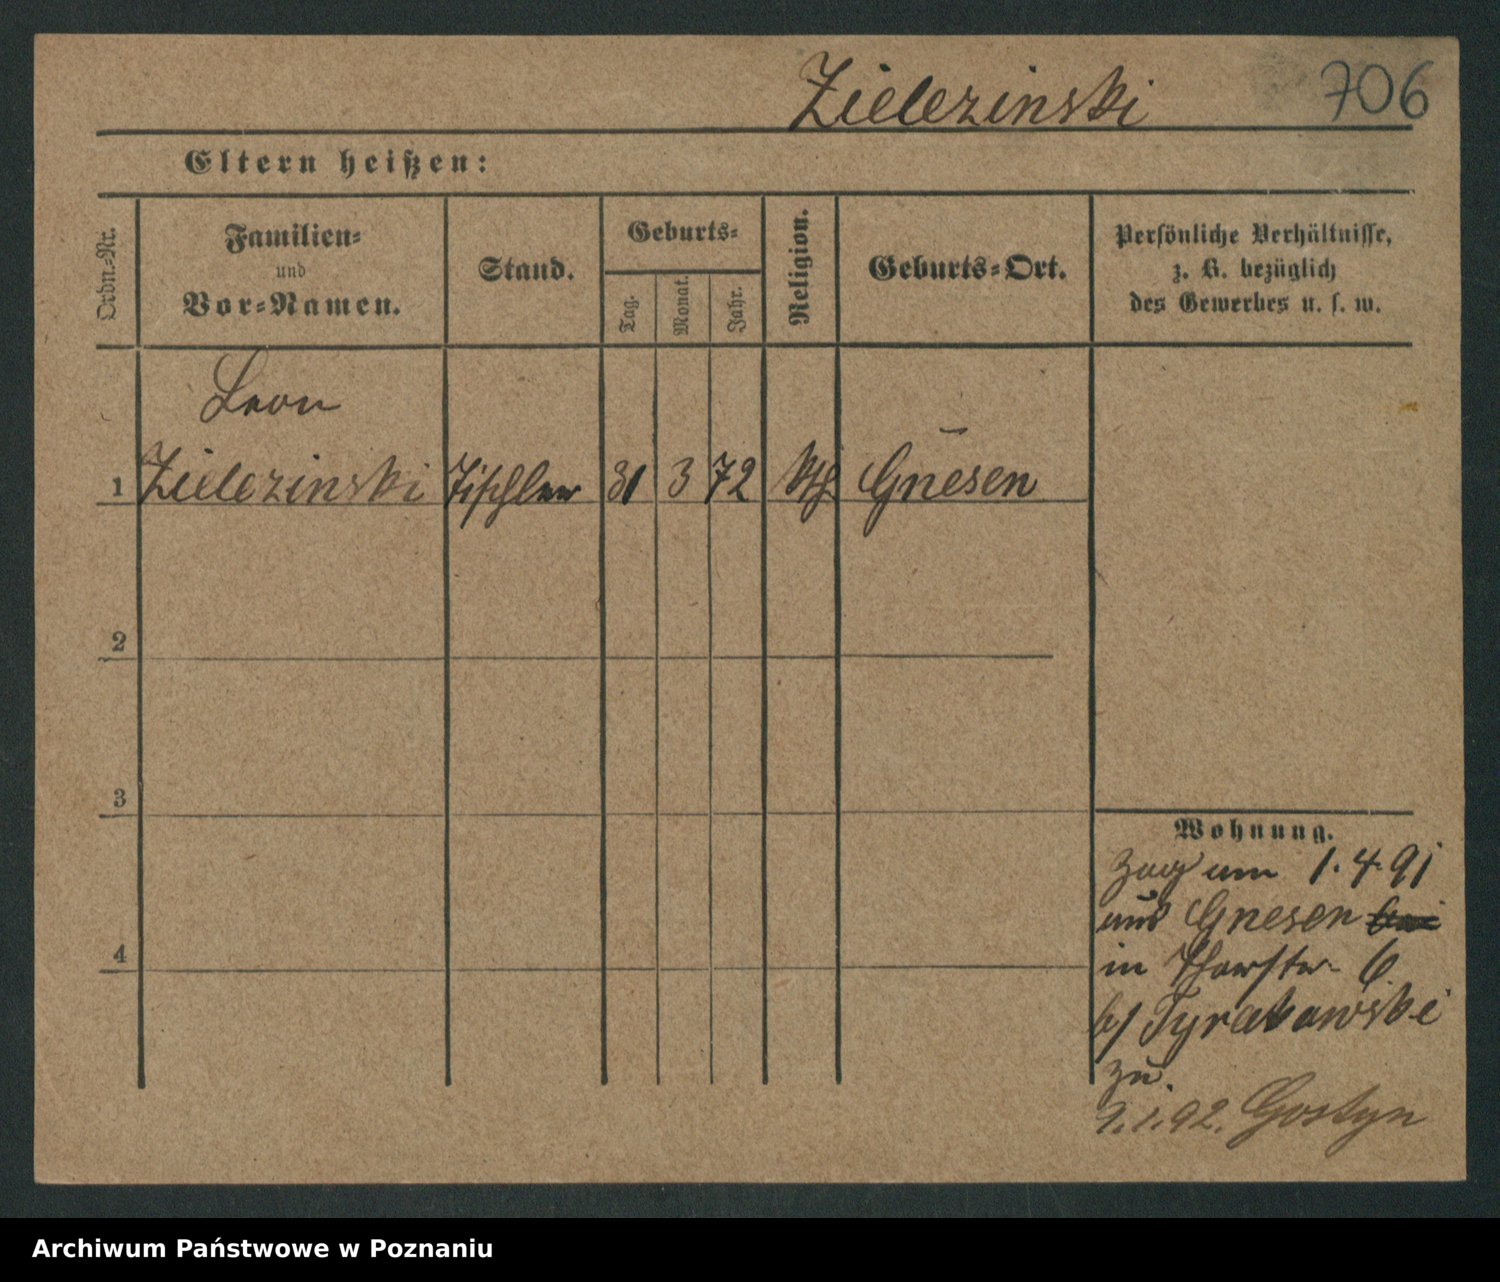 Zielezinski 706
Eltern heißen:
Ordn.-Nr.
Familien-
und
Vor-Namen.
Stand.
Geburts-
Tag.
Monat.
Jahr.
Religion.
Geburts-Ort.
Persönliche Verhältnisse,
z. B. bezüglich
des Gewerbes u. s. w.
Leon
1 Zielezinski Tischler 31 3 72 kth Gnesen
2
3
4
Wohnung.
Zog am 1.4.91
aus Gnesen
in 6
b/ Tyrakowski
zu.
9.1.92. Gostyn
Archiwum Państwowe w Poznaniu